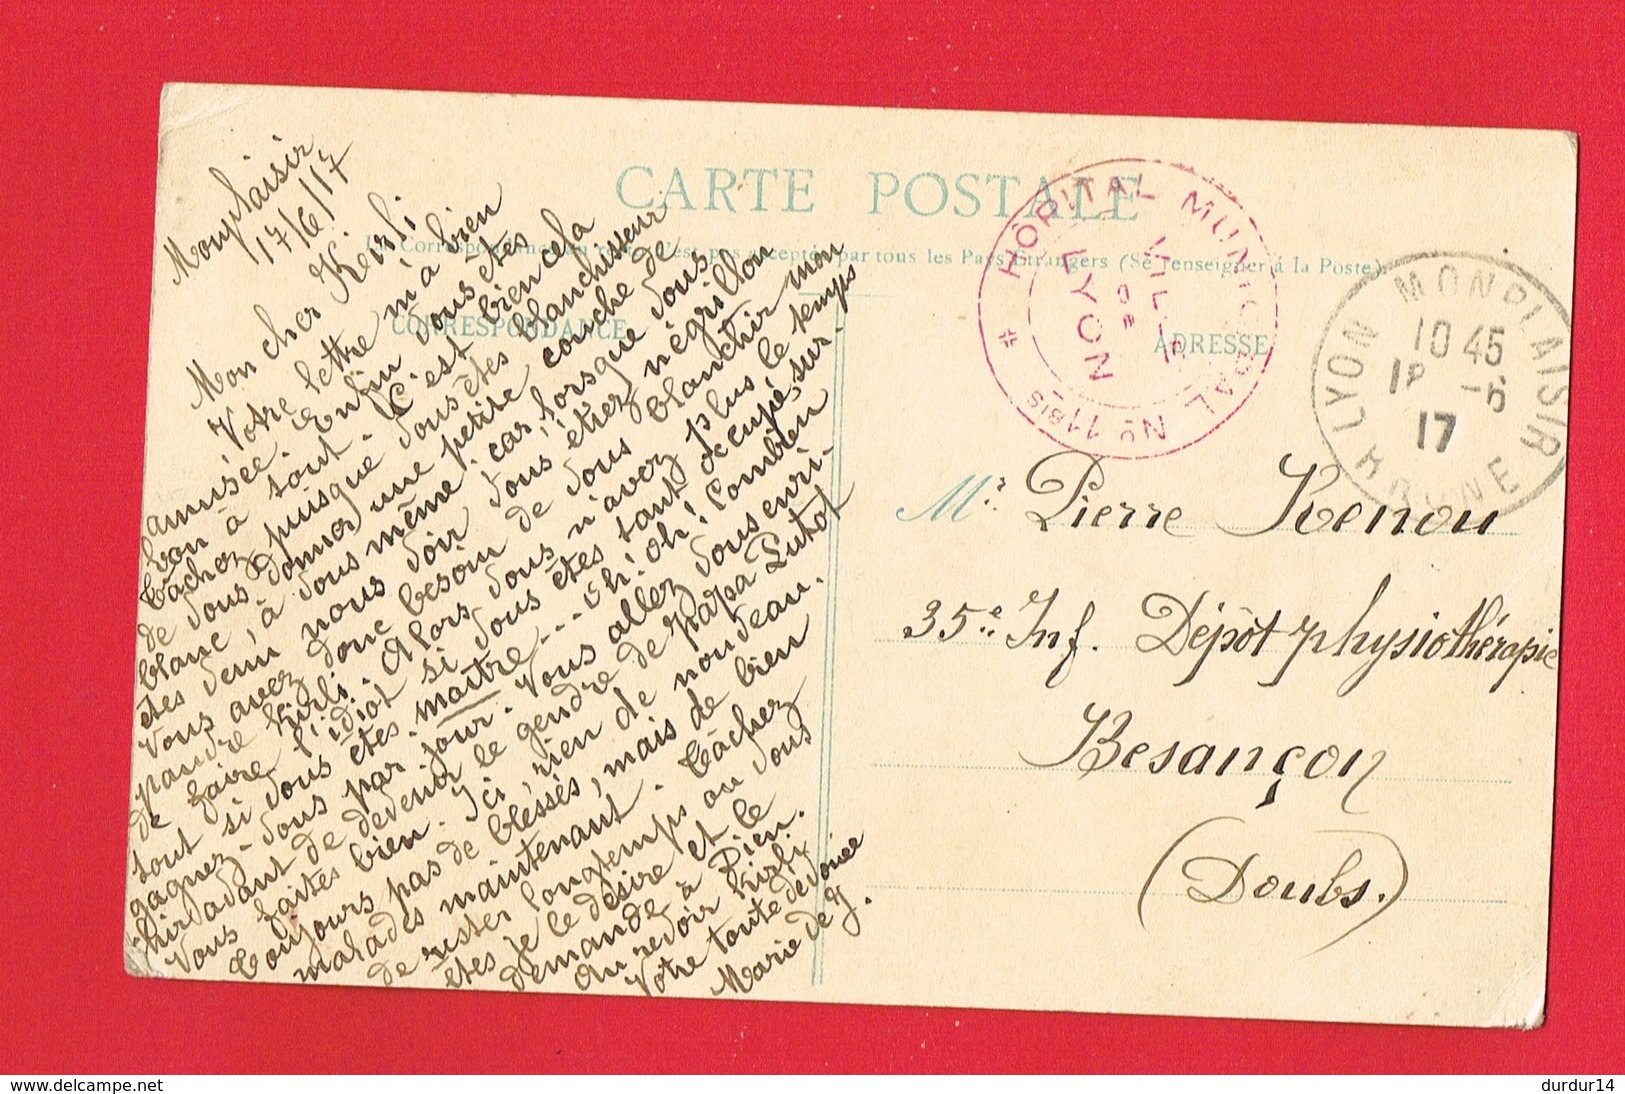 CARTE POSTALE
La Correspondance au recto n'est pas acceptée par tous les Pays Etrangers (Se renseigner à la Poste)
CORRESPONDANCE
ADRESSE
HÔPITAL MUNICIPAL Nº 11 BIS
VILLE DE LYON
LYON MONPLAISIR RHONE
10 45
18 -6
17
Monplaisir
17/6/17
Mon cher Kirli
Votre lettre m'a bien
amusée. Enfin vous êtes
bon à tout. C'est bien cela
tâchez puisque vous êtes blanchisseur
de vous donner une petite couche de
blanc, à vous même. car lorsque vous
êtes venu nous voir vous étiez négrillon
Vous avez donc besoin de vous blanchir mon
pauvre Kirli. Alors vous n'avez plus le temps
de faire l'idiot si vous êtes tant occupé, sur-
tout si vous êtes maître... oh! oh! Combien
gagnez-vous par jour. Vous allez vous enri-
chir avant de devenir le gendre de papa Putot
Vous faites bien. Ici rien de nouveau.
Toujours pas de blessés, mais de bien
malades maintenant. Tâchez
de rester longtemps où vous
êtes je le désire et le
demande à Dieu.
Au revoir Kirli
Votre toute dévouée
Marie de J.
Mr. Pierre Renou
35e. Inf. Dépôt physiothérapie
Besançon
(Doubs.)
www.delcampe.net
durdur14